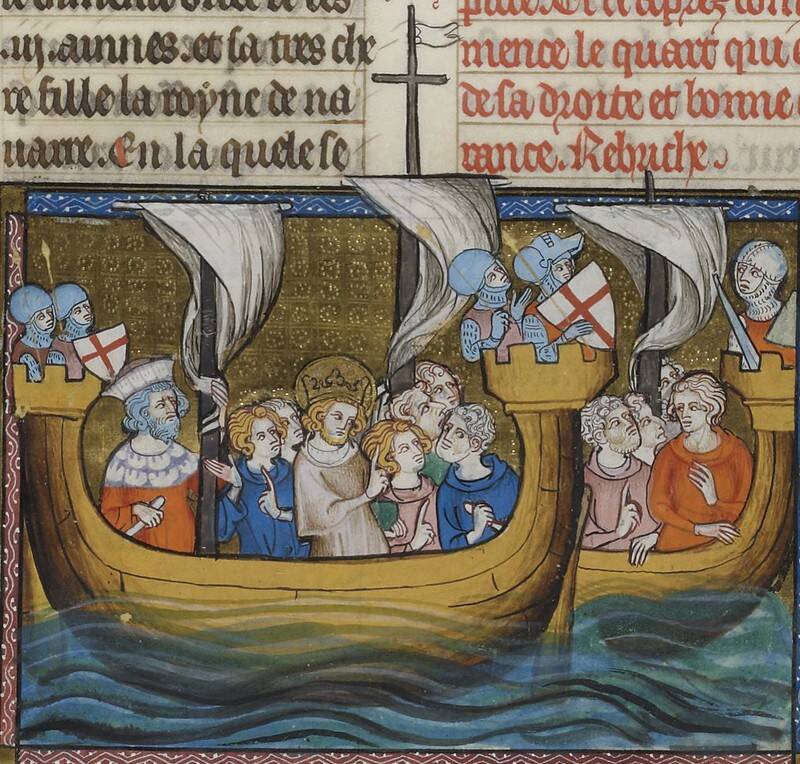 .iij. ainnes. et sa tres che
re fille la royne de na
uarre. En la quele se
pitre. Et ce apres com
mence le quart qui
de sa droite et bonne
rance. Rebriche.